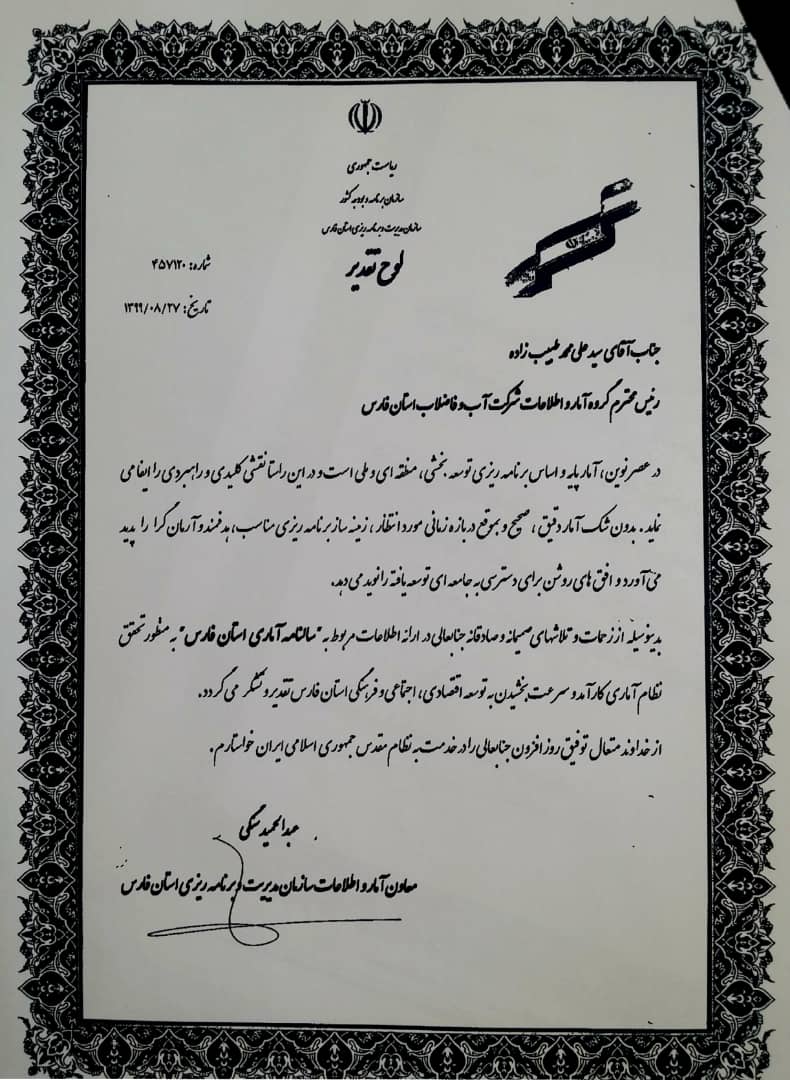 ریاست جمهوری
سازمان برنامه و بودجه کشور
سازمان مدیریت و برنامه ریزی استان فارس
لوح تقدیر
شماره: ۴۵۷۱۲۰
تاریخ: ۱۳۹۹/۰۸/۲۷
جناب آقای سید علی محمد طبیب زاده
رئیس محترم گروه آمار و اطلاعات شرکت آب و فاضلاب استان فارس
در عصر نوین، آمار پایه و اساس برنامه ریزی توسعه بخشی، منطقه ای و ملی است و در این راستا نقشی کلیدی و راهبردی را ایفا می
نماید. بدون شک آمار دقیق، صحیح و بموقع در بازه زمانی مورد انتظار، زمینه ساز برنامه ریزی مناسب، هدفمند و آرمان گرا را پدید
می آورد و افق های روشن برای دسترسی به جامعه ای توسعه یافته را نوید می دهد.
بدینوسیله از زحمات و تلاشهای صمیمانه و صادقانه جنابعالی در ارائه اطلاعات مربوط به "سالنامه آماری استان فارس" به منظور تحقق
نظام آماری کارآمد و سرعت بخشیدن به توسعه اقتصادی، اجتماعی و فرهنگی استان فارس تقدیر و تشکر می گردد.
از خداوند متعال توفیق روز افزون جنابعالی را در خدمت به نظام مقدس جمهوری اسلامی ایران خواستارم.
عبدالحمید سنگی
معاون آمار و اطلاعات سازمان مدیریت و برنامه ریزی استان فارس